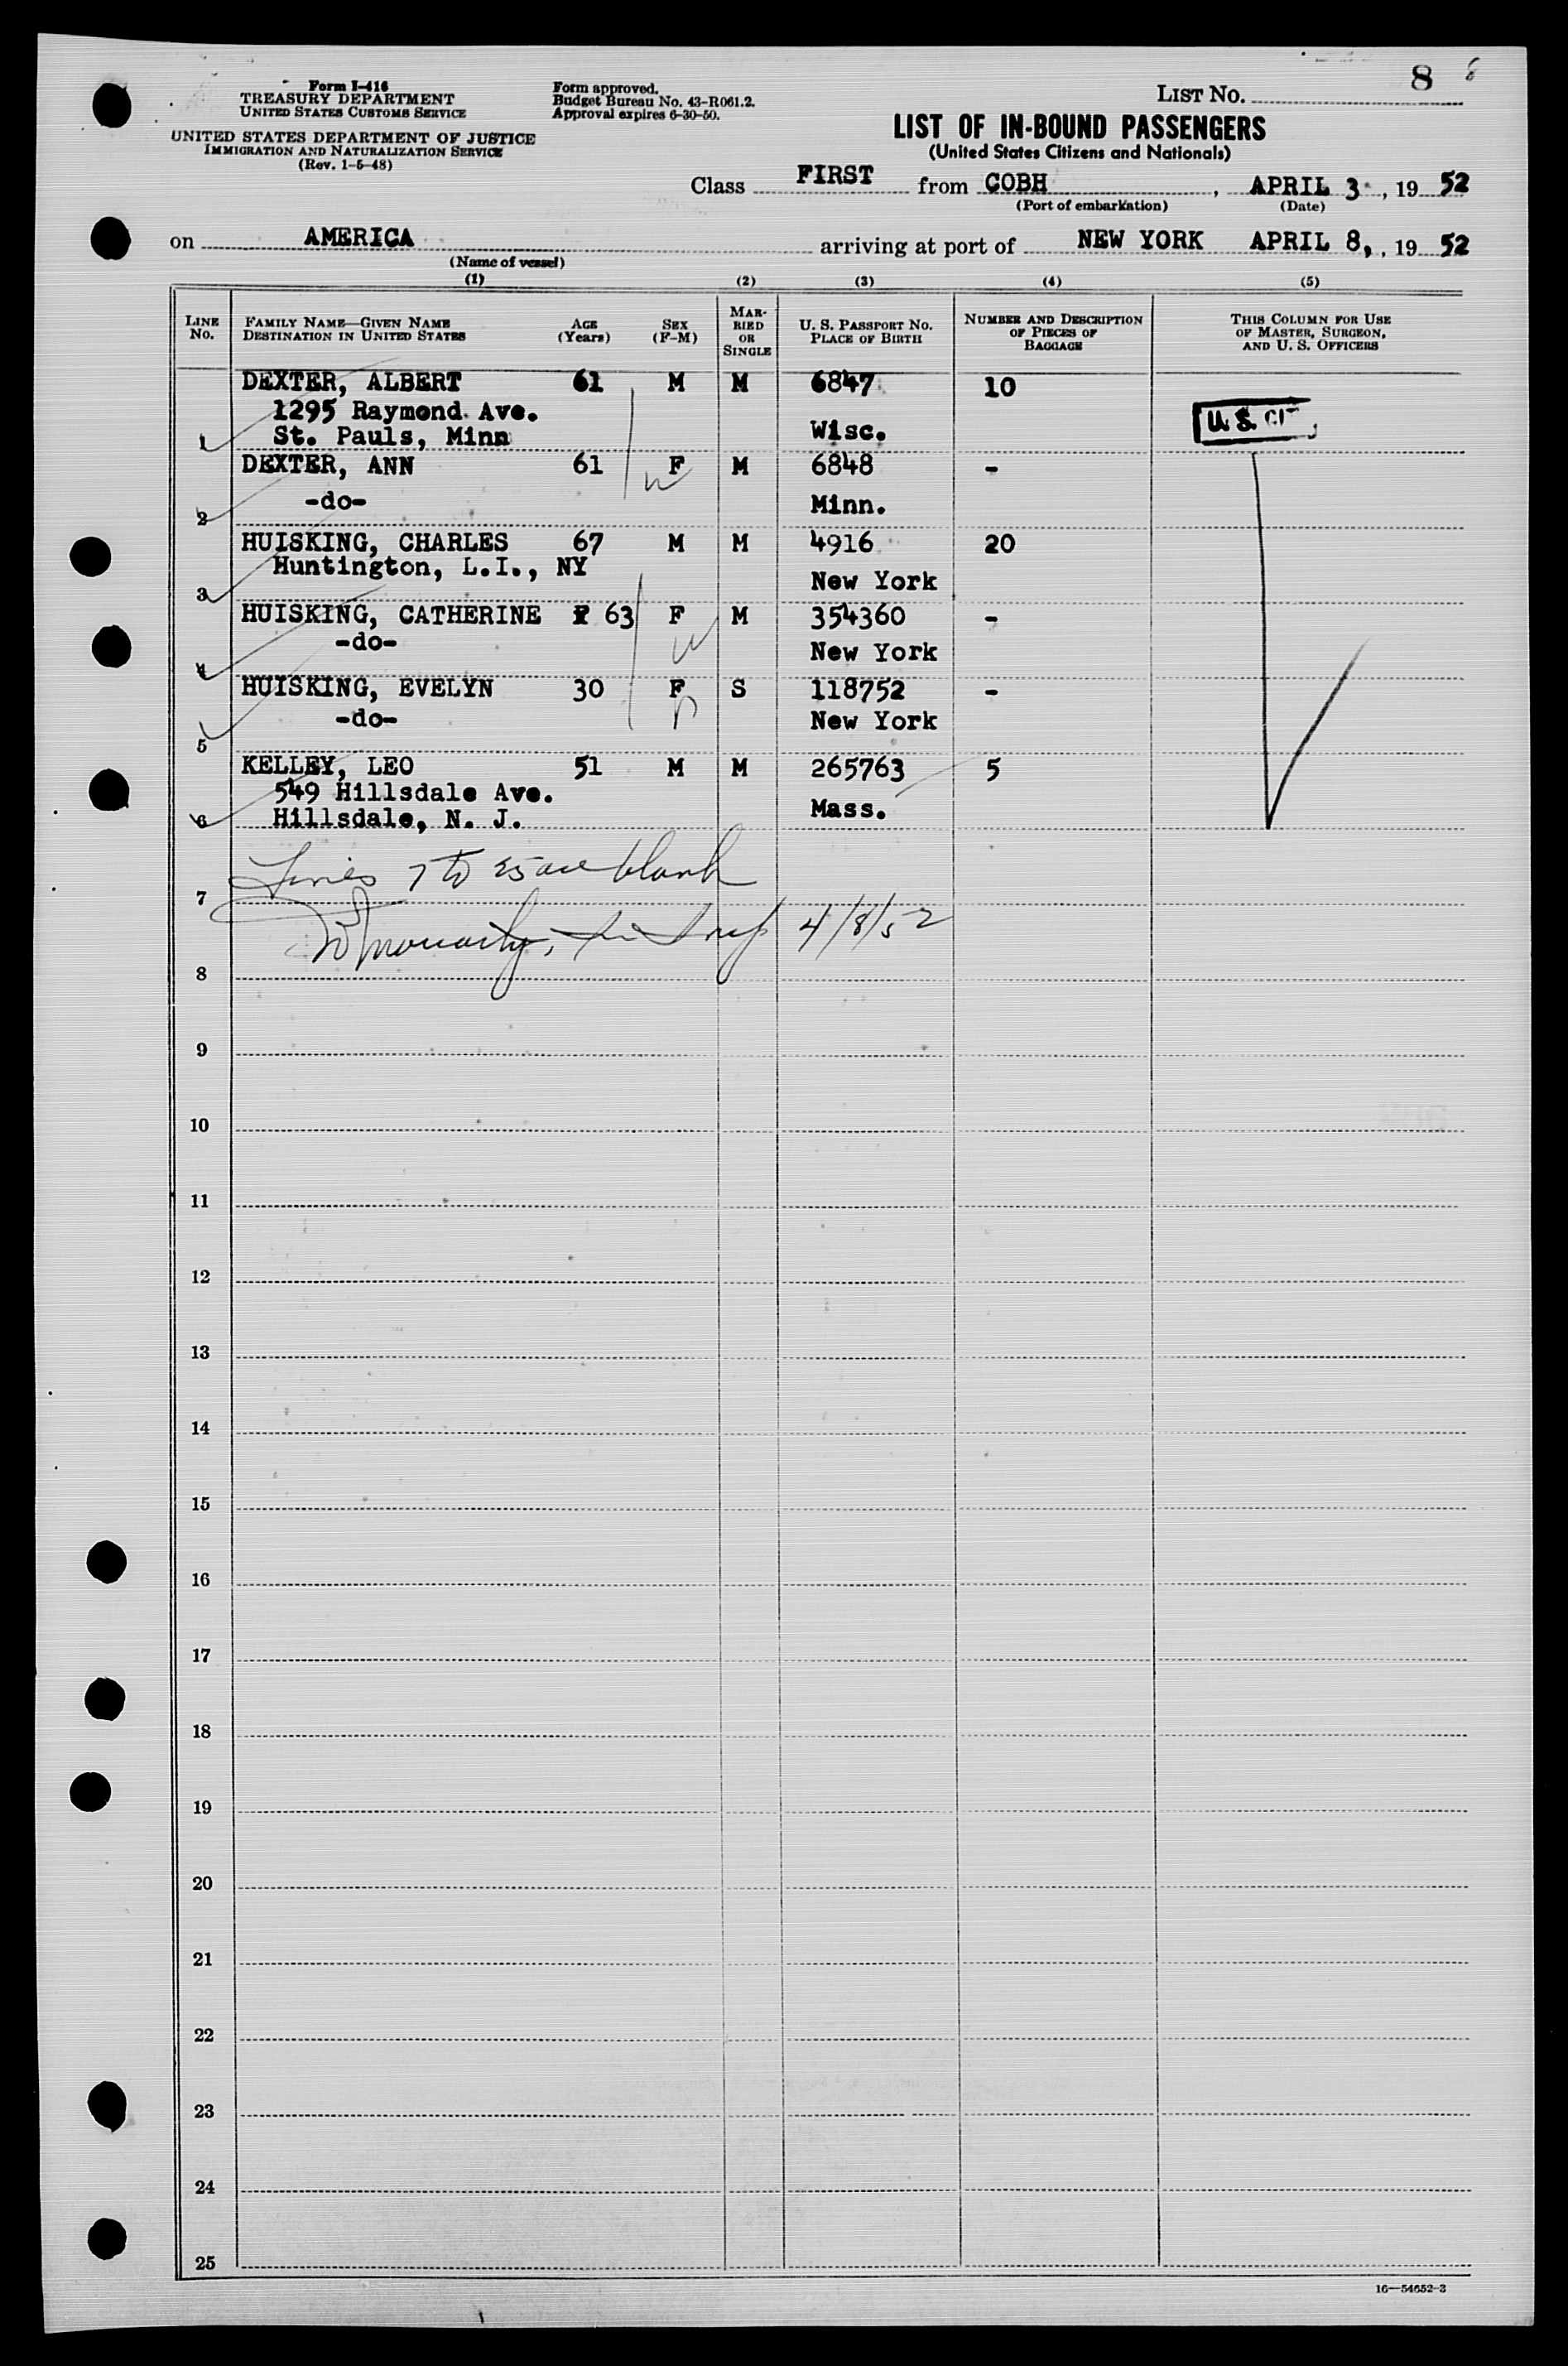 Form I-416
TREASURY DEPARTMENT
UNITED STATES CUSTOMS SERVICE
UNITED STATES DEPARTMENT OF JUSTICE
IMMIGRATION AND NATURALIZATION SERVICE
(Rev. 1-5-48)
Form approved.
Budget Bureau No. 43-R061.2.
Approval expires 6-30-50.
LIST NO. 8
LIST OF IN-BOUND PASSENGERS
(United States Citizens and Nationals)
Class FIRST from COBH, APRIL 3, 19 52
(Port of embarkation) (Date)
on AMERICA arriving at port of NEW YORK APRIL 8, , 19 52
(Name of vessel)
(1) (2) (3) (4) (5)
LINE NO. FAMILY NAME—GIVEN NAME DESTINATION IN UNITED STATES AGE (Years) SEX (F-M) MARRIED OR SINGLE U. S. PASSPORT NO. PLACE OF BIRTH NUMBER AND DESCRIPTION OF PIECES OF BAGGAGE THIS COLUMN FOR USE OF MASTER, SURGEON, AND U. S. OFFICERS
DEXTER, ALBERT 61 M M 6847 10
1295 Raymond Ave.
1 St. Pauls, Minn Wisc. U. S. CIT
DEXTER, ANN 61 F M 6848 -
2 -do- Minn.
HUISKING, CHARLES 67 M M 4916 20
Huntington, L.I., NY
3 New York
HUISKING, CATHERINE 63 F M 354360 -
4 -do- New York
HUISKING, EVELYN 30 F S 118752 -
-do- New York
5
KELLEY, LEO 51 M M 265763 5
549 Hillsdale Ave.
6 Hillsdale, N. J. Mass.
Lines 7 to 25 are blank
7
4/8/52
8
9
10
11
12
13
14
15
16
17
18
19
20
21
22
23
24
25
16—54652-3